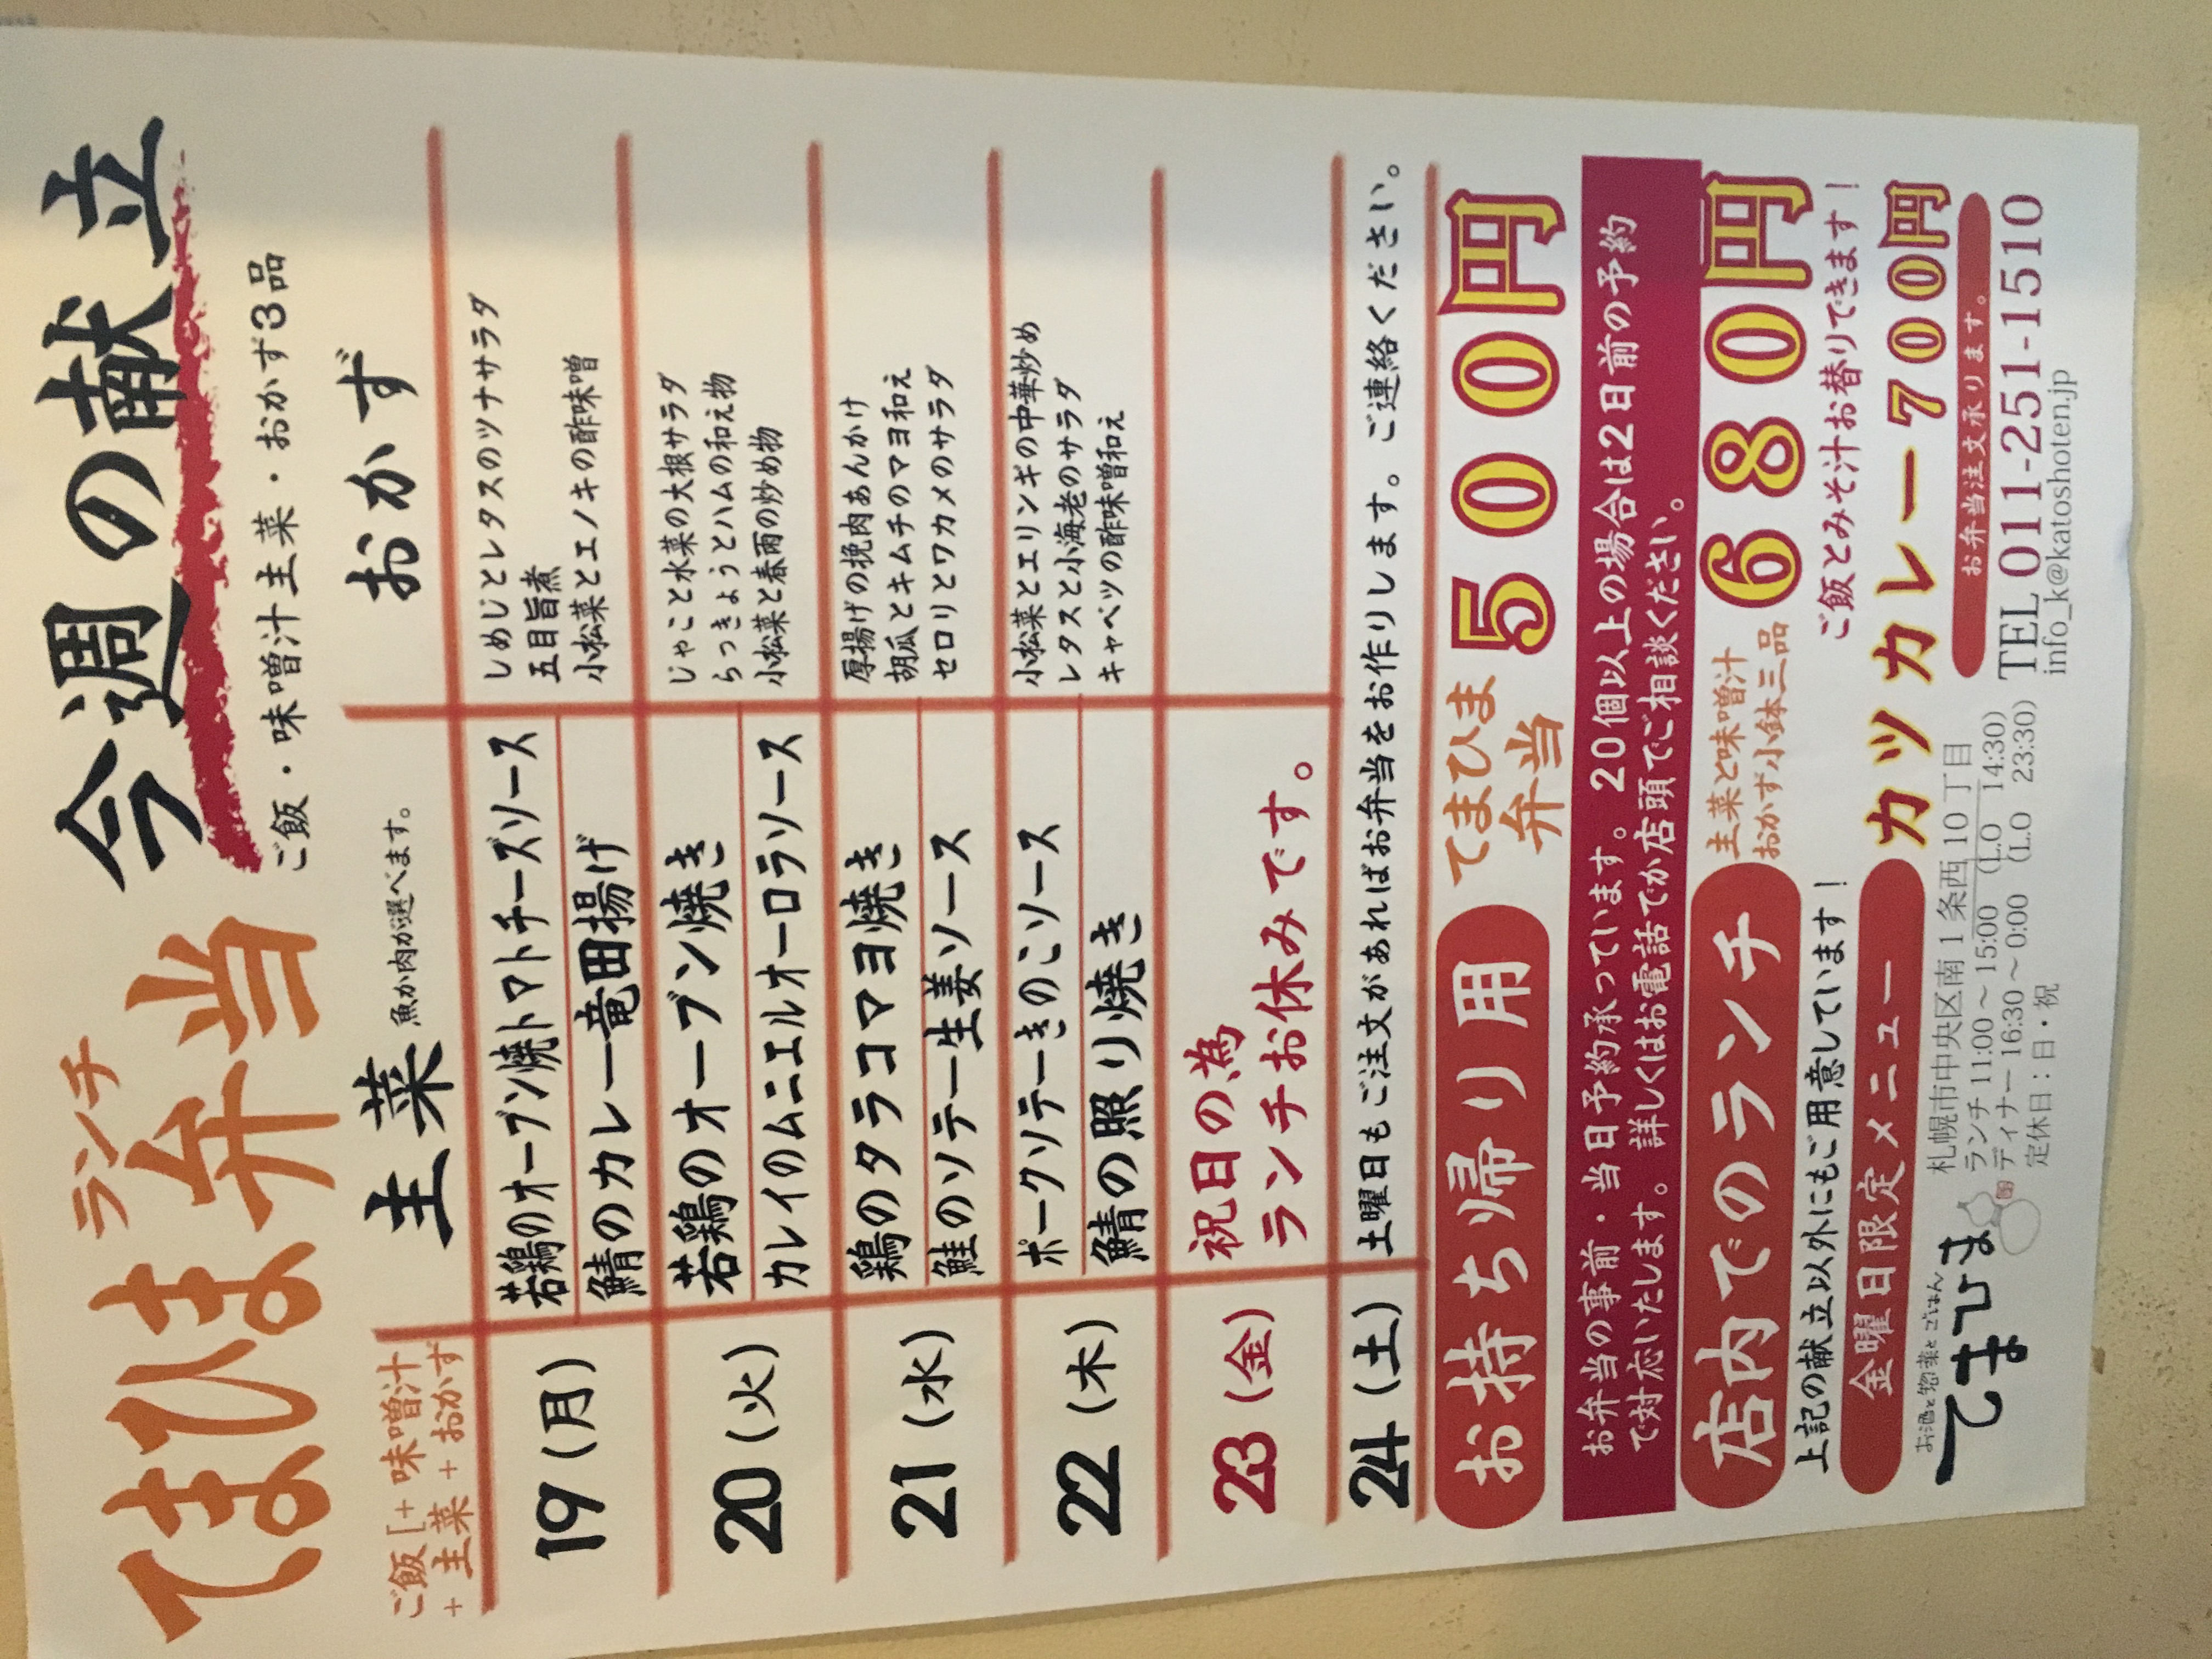 ランチ
てまひま弁当
今週の献立
ご飯・味噌汁主菜・おかず3品
ご飯[+味噌汁]
+主菜+おかず
主菜 魚か肉が選べます。
おかず
19(月)
若鶏のオーブン焼トマトチーズソース
鯖のカレー竜田揚げ
しめじとレタスのツナサラダ
五目旨煮
小松菜とエノキの酢味噌
20(火)
若鶏のオーブン焼き
カレイのムニエルオーロラソース
じゃこと水菜の大根サラダ
らっきょうとハムの和え物
小松菜と春雨の炒め物
21(水)
鶏のタラコマヨ焼き
鮭のソテー生姜ソース
厚揚げの挽肉あんかけ
胡瓜とキムチのマヨ和え
セロリとワカメのサラダ
22(木)
ポークソテーきのこソース
鯖の照り焼き
小松菜とエリンギの中華炒め
レタスと小海老のサラダ
キャベツの酢味噌和え
23(金)
祝日の為
ランチお休みです。
24(土)
土曜日もご注文があればお弁当をお作りします。ご連絡ください。
お持ち帰り用
てまひま
弁当
500円
お弁当の事前・当日予約承っています。20個以上の場合は2日前の予約
で対応いたします。詳しくはお電話でか店頭でご相談ください。
店内でのランチ
主菜と味噌汁
おかず小鉢三品
680円
上記の献立以外にもご用意しています!
ご飯とみそ汁お替りできます!
金曜日限定メニュー
カツカレー700円
お酒と惣菜とごはん
てまひま
札幌市中央区南1条西10丁目
ランチ 11:00～15:00 (L.O 14:30)
ディナー 16:30～0:00 (L.O 23:30)
定休日:日・祝
お弁当注文承ります。
TEL 011-251-1510
info_k@katoshoten.jp